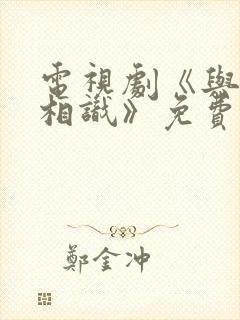 電視劇《與
相識》免費
鄭金冲